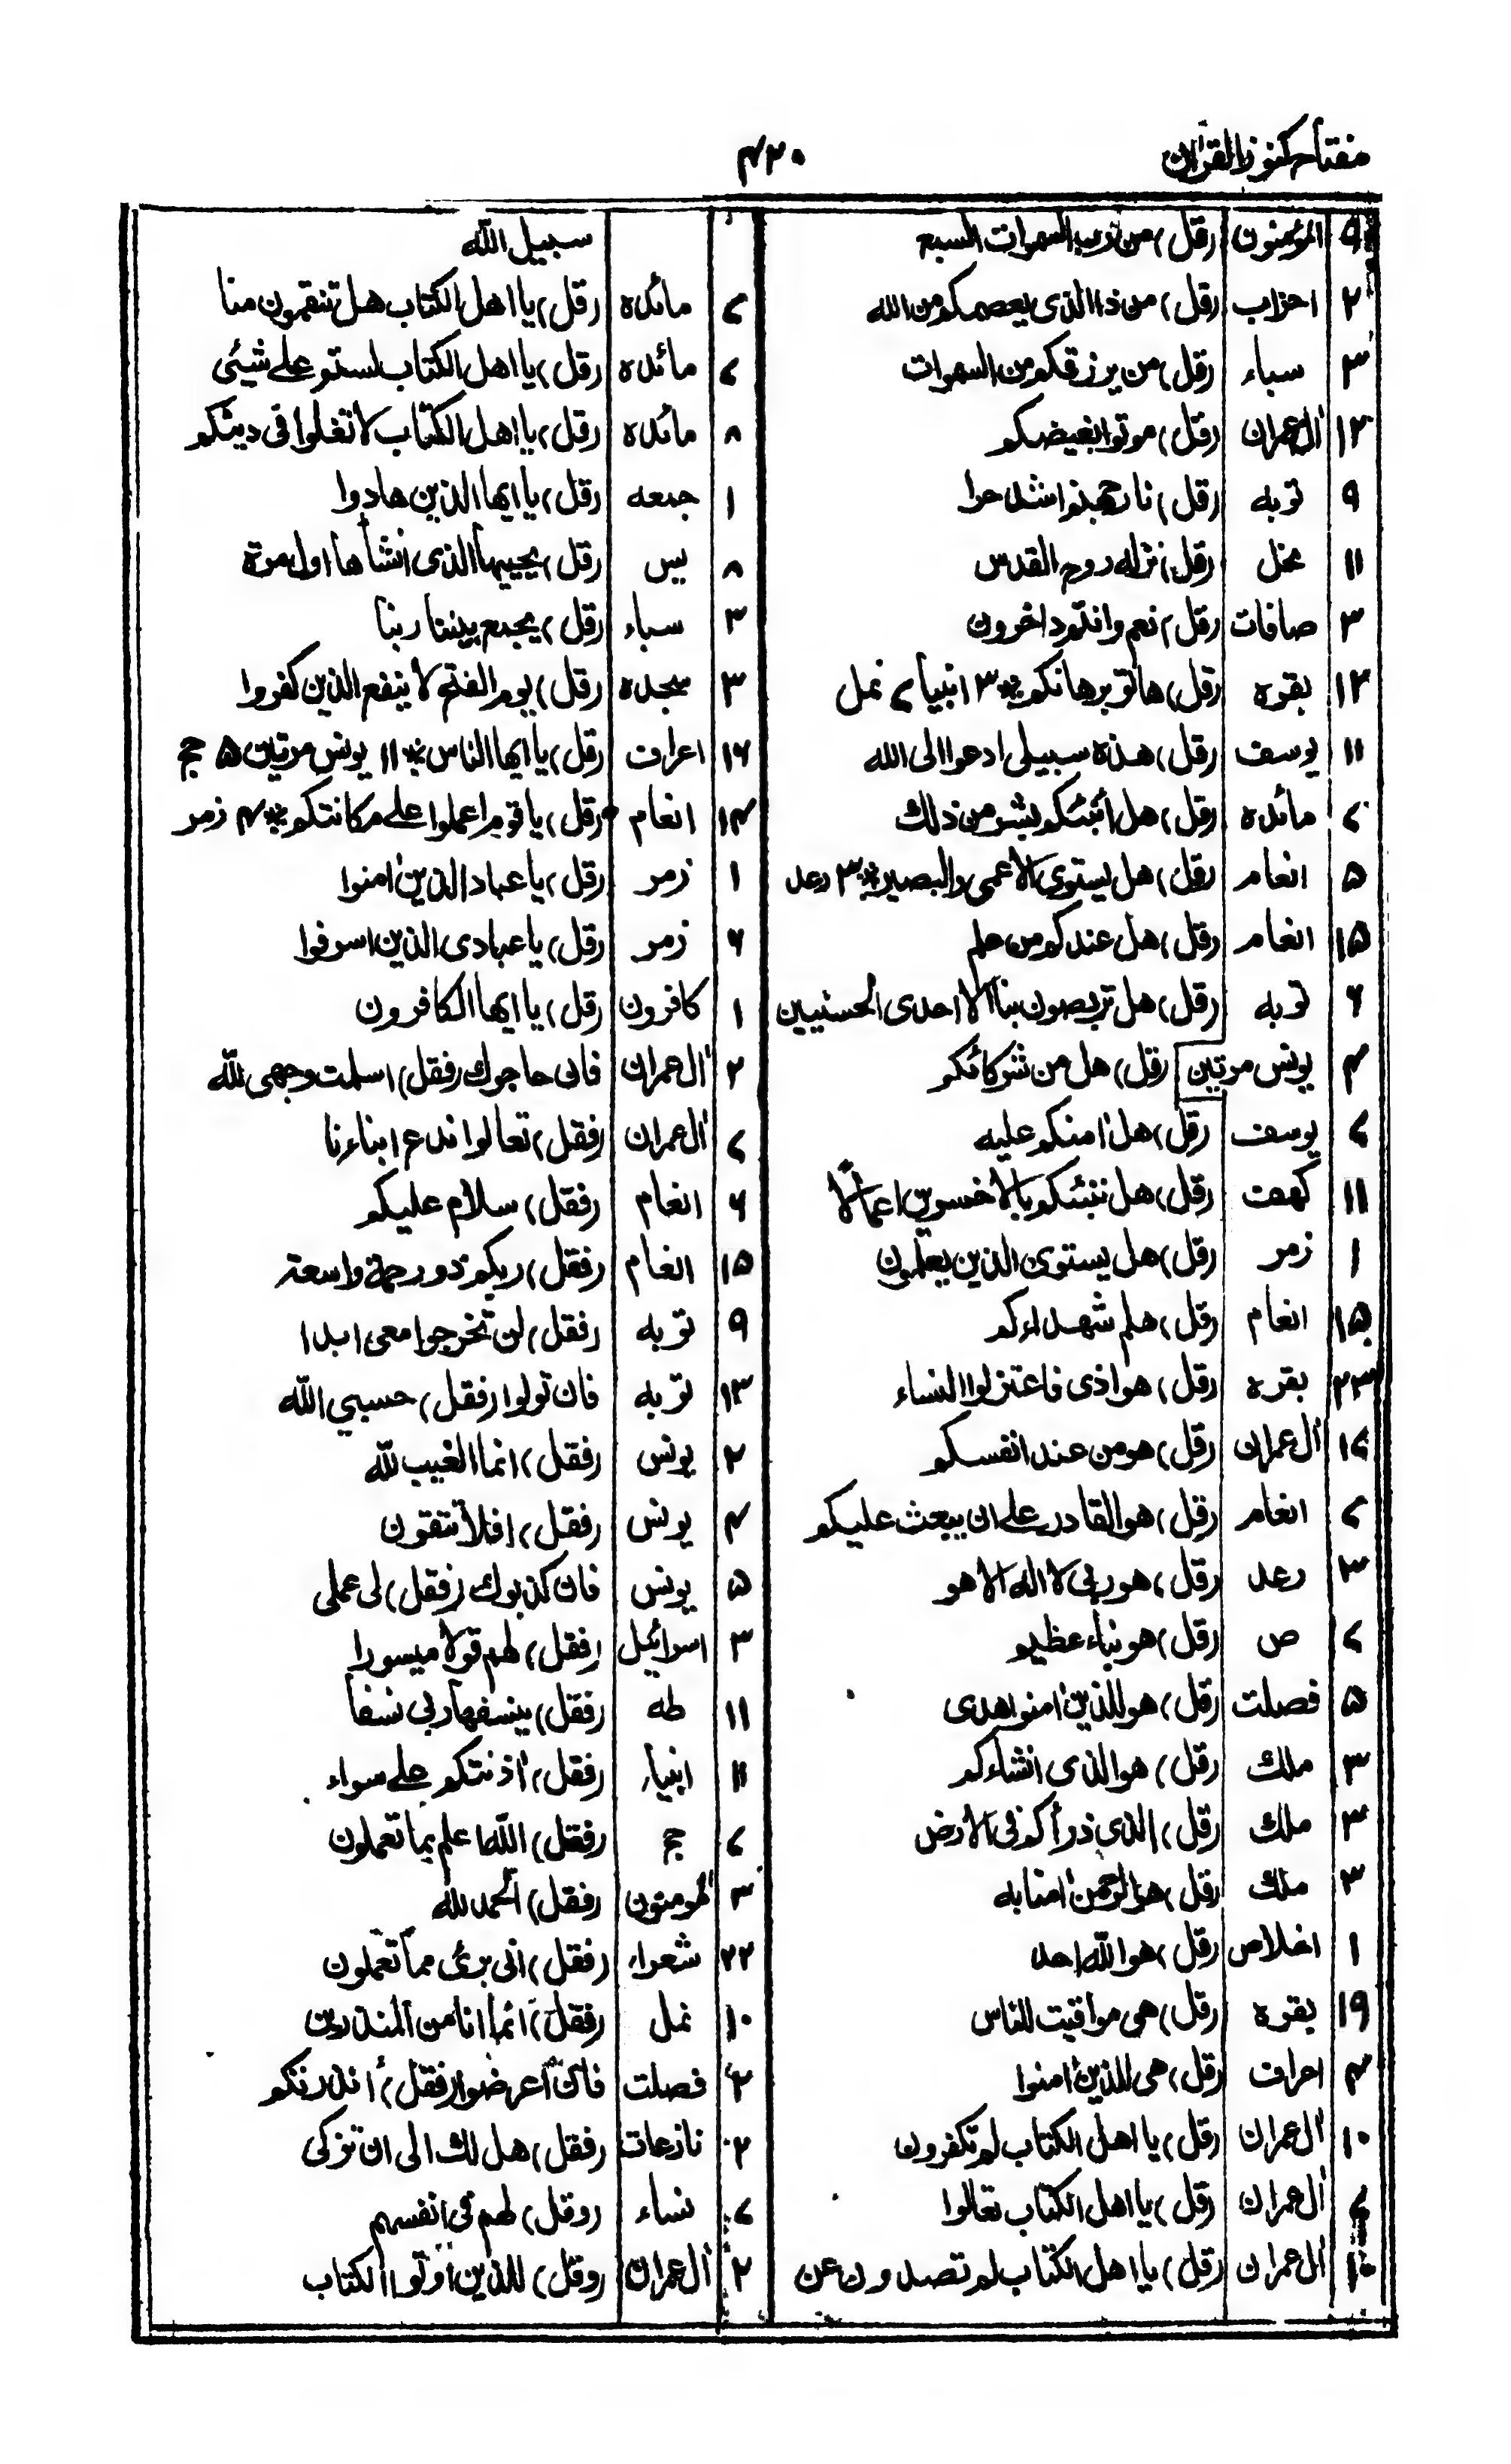 مفتاح كنوز القرآن
۴۲۰
۵ المؤمنون (قل) من رب السموات السبع
۲ احزاب (قل) من ذا الذى يعصمكم من الله
۳ سباء (قل) من يرزقكم من السموات
۱۲ اٰل عمران (قل) موتوا بغيضكم
۹ توبه (قل) نار جهنم اشد حرا
۱۱ نحل (قل) نزله روح القدس
۳ صافات (قل) نعم وانتم داخرون
۱۳ بقره (قل) هاتو برهانكم * ۳ انبياء ۷ نمل
۱۱ يوسف (قل) هذه سبيلى ادعوا الى الله
۷ مائده (قل) هل أنبئكم بشر من ذلك
۵ انعام (قل) هل يستوى الاعمى والبصير * ۳ رعد
۱۵ انعام (قل) هل عندكم من علم
۶ توبه (قل) هل تربصون بنا الا احدى الحسنيين
۴ يونس مرتين (قل) هل من شركائكم
۷ يوسف (قل) هل اٰمنكم عليه
۱۱ كهف (قل) هل ننبئكم بالاخسرين اعمالًا
۱ زمر (قل) هل يستوى الذين يعلمون
۱۵ انعام (قل) هلم شهداءكم
۲۳ بقره (قل) هو اذى فاعتزلوا النساء
۱۷ اٰل عمران (قل) هو من عند انفسكم
۷ انعام (قل) هو القادر على ان يبعث عليكم
۳ رعد (قل) هو ربى لا اله الا هو
۷ ص (قل) هو نباء عظيم
۵ فصلت (قل) هو للذين اٰمنوا هدى
۳ ملك (قل) هو الذى انشاءكم
۳ ملك (قل) الذى ذرأكم فى الارض
۳ ملك (قل) هو الرحمن اٰمنا به
۱ اخلاص (قل) هو اللّه احد
۱۹ بقره (قل) هى مواقيت للناس
۴ اعراف (قل) هى للذين اٰمنوا
۱۰ اٰل عمران (قل) يا اهل الكتاب لم تكفرون
۷ اٰل عمران (قل) يا اهل الكتاب تعالوا
۱۰ اٰل عمران (قل) يا اهل الكتاب لم تصدون عن
سبيل اللّه
۷ مائده (قل) يا اهل الكتاب هل تنقمون منا
۷ مائده (قل) يا اهل الكتاب لستم على شيئى
۸ مائده (قل) يا اهل الكتاب لا تغلوا فى دينكم
۱ جمعه (قل) يا ايها الذين هادوا
۸ يس (قل) يحييها الذى انشأها اول مرة
۳ سباء (قل) يجمع بيننا ربنا
۳ سجده (قل) يوم الفتح لا ينفع الذين كفروا
۱۶ اعراف (قل) يا ايها الناس * ۱۱ يونس مرتين ۵ حج
۱۴ انعام (قل) يا قوم اعملوا على مكانتكم * ۴ زمر
۱ زمر (قل) يا عباد الذين اٰمنوا
۶ زمر (قل) يا عبادى الذين اسرفوا
۱ كافرون (قل) يا ايها الكافرون
۲ اٰل عمران فان حاجوك (فقل) اسلمت وجهى للّه
۷ اٰل عمران (فقل) تعالوا ندع ابناءنا
۶ انعام (فقل) سلام عليكم
۱۵ انعام (فقل) ربكم ذو رحمة واسعة
۹ توبه (فقل) لن تخرجوا معى ابدا
۱۳ توبه فان تولوا (فقل) حسبى اللّه
۲ يونس (فقل) انما الغيب للّه
۴ يونس (فقل) افلا تتقون
۵ يونس فان كذبوك (فقل) لى عملى
۳ اسرائيل (فقل) لهم قولا ميسورا
۱۱ طه (فقل) ينسفها ربى نسفا
۱۱ انبياء (فقل) اٰذنتكم على سواء
۷ حج (فقل) اللّه اعلم بما تعملون
۳ المومنون (فقل) الحمد للّه
۲۲ شعراء (فقل) انى برئ مما تعملون
۱۰ نمل (فقل) انما انا من المنذرين
۲ فصلت فان اعرضوا (فقل) أنذرتكم
۲ نازعات (فقل) هل لك الى ان تزكى
۷ نساء (وقل) لهم فى انفسهم
۲ اٰل عمران (وقل) للذين اوتوا الكتاب